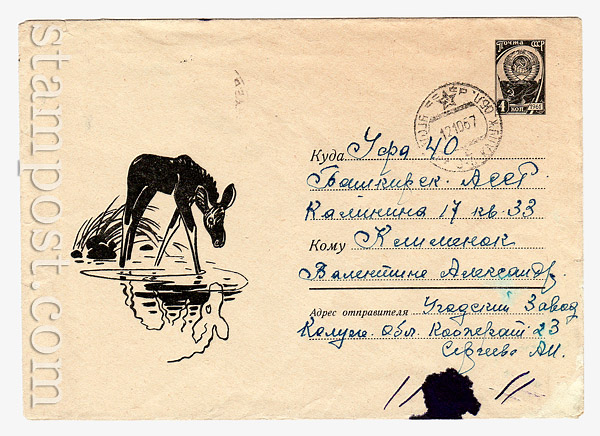 stampost.com
Почта СССР
4 коп 1961
СССР
121067
Куда Уфа 40
Башкирск. АССР
Калинина 17 кв. 33
Кому Клименок
Валентине Александр.
Адрес отправителя Угодский Завод
Калуж. Обл. 23
Сергеева А.И.